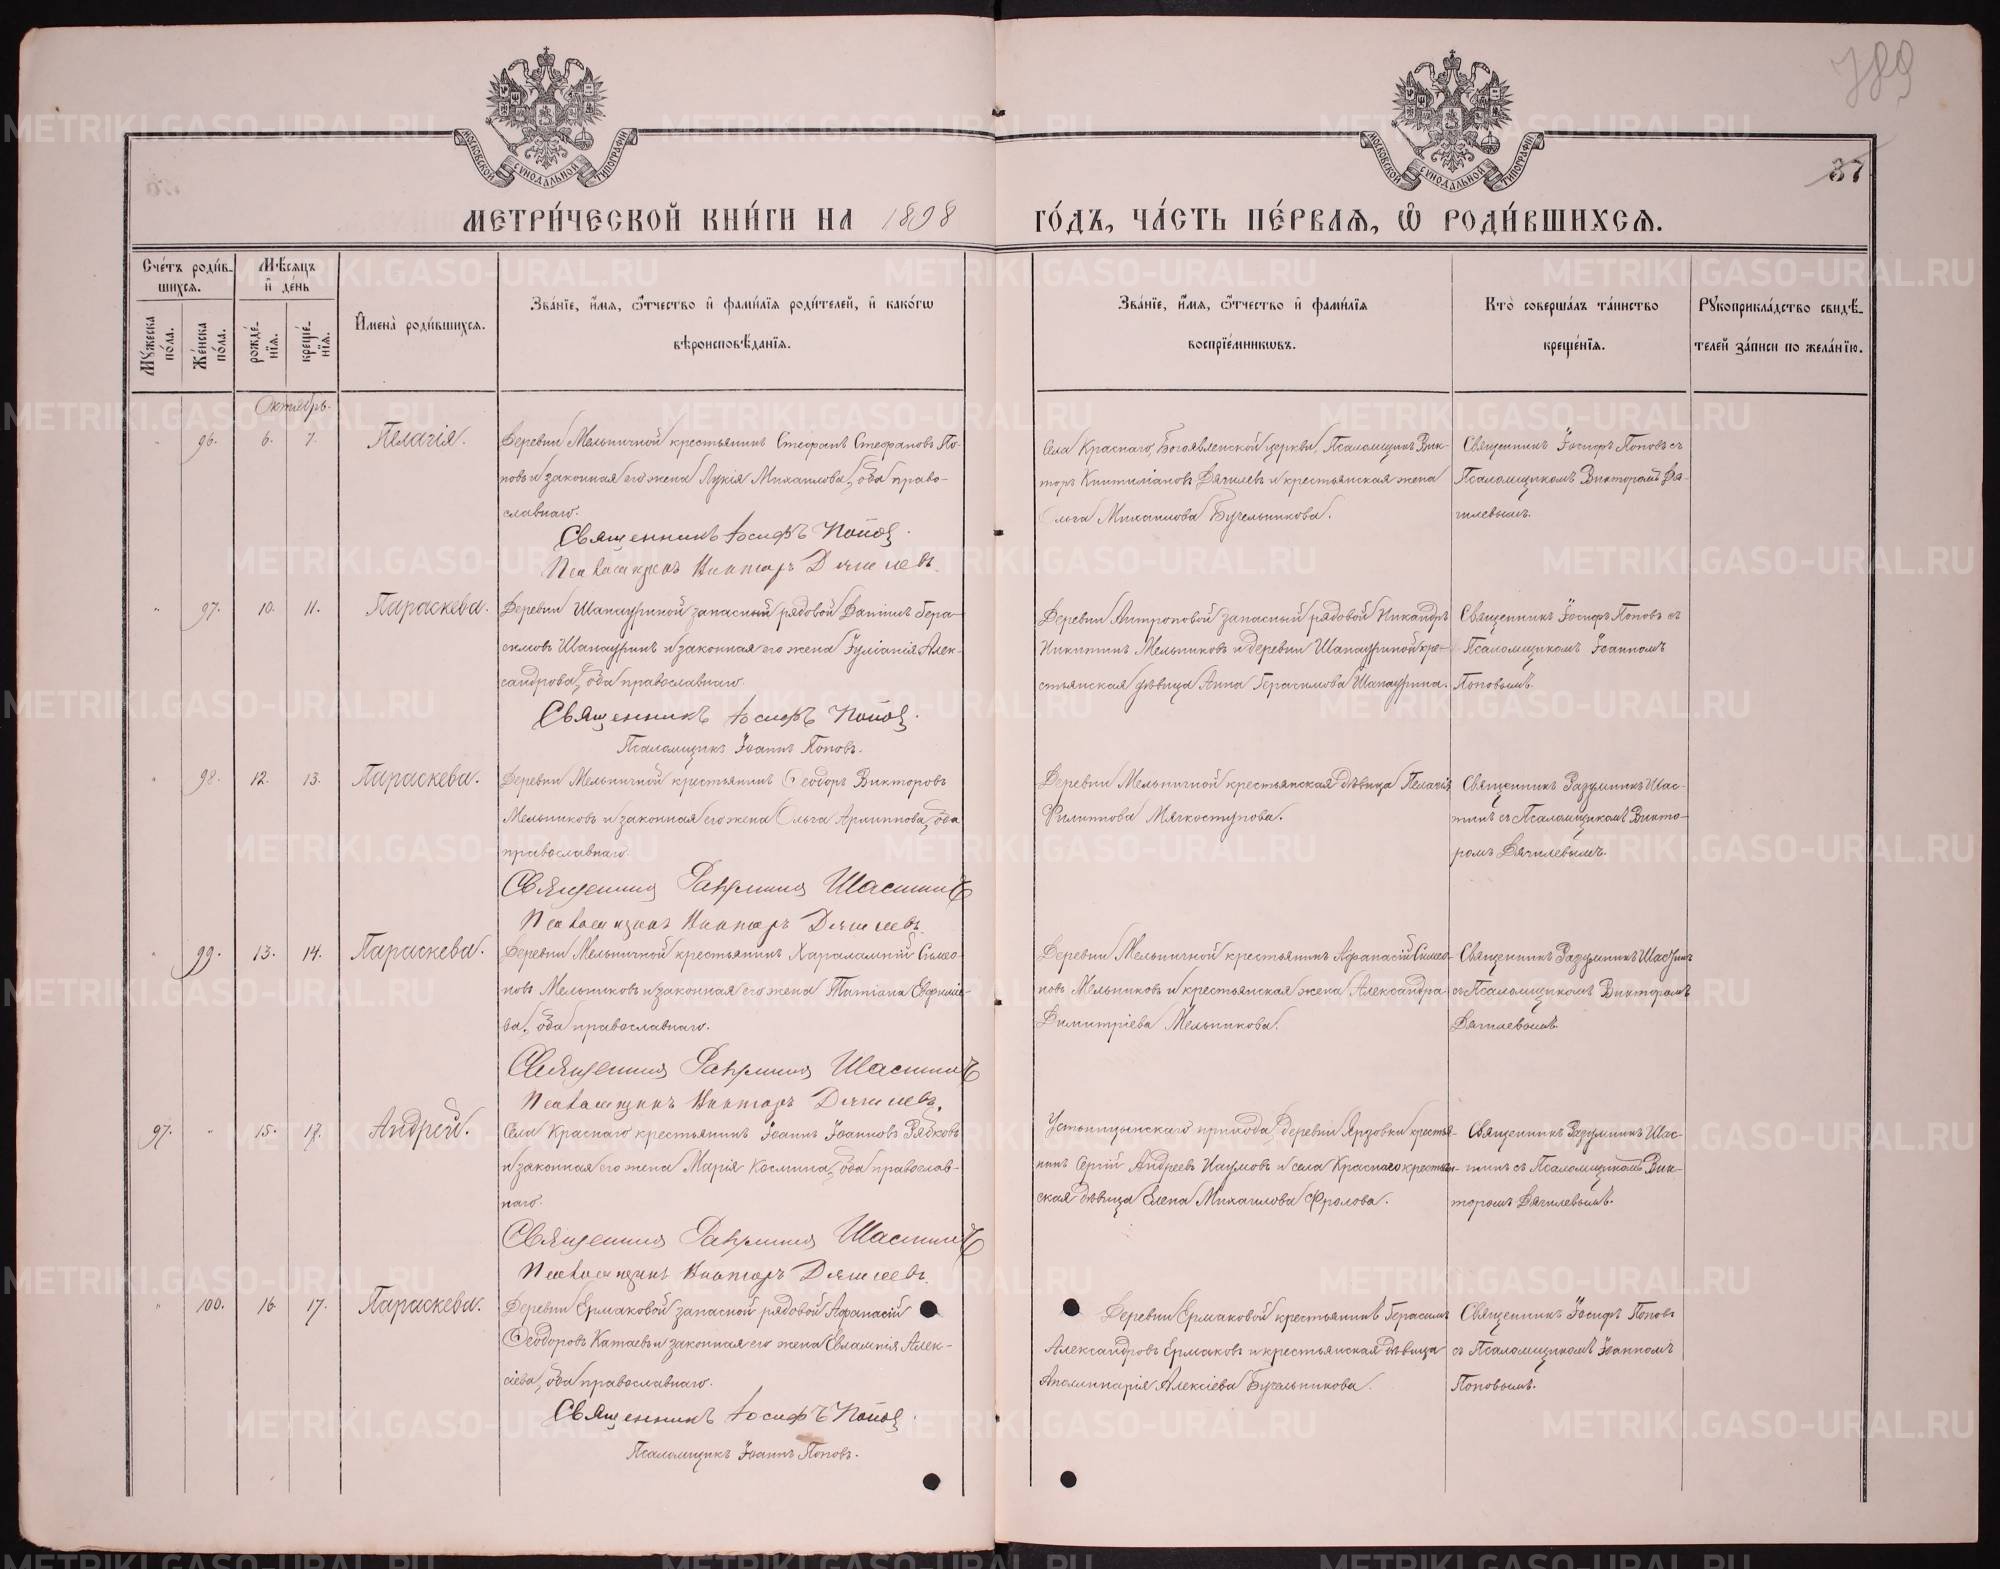 789
37
МОСКОВСКОЙ СѴНОДАЛЬНОЙ ТИПОГРАФІИ
МОСКОВСКОЙ СѴНОДАЛЬНОЙ ТИПОГРАФІИ
МЕТРИ́ЧЕСКОЙ КНИ́ГИ НА 1898 ГО́ДЪ, ЧА́СТЬ ПЕ́РВАѦ, Ѽ РОДИ́ВШИХСѦ.
Сче́тъ роди́в-
шихсѧ.
Мѣ́сѧцъ
и҆ де́нь
Мꙋ́жеска по́ла.
Же́нска по́ла.
рожде́-нїѧ.
креще́-нїѧ.
И҆мена̀ роди́вшихсѧ.
Зва́нїе, и҆́мѧ, ѻ҆́тчество и҆ фами́лїѧ роди́телей, и҆ како́гѡ
вѣроисповѣ́данїѧ.
Зва́нїе, и҆́мѧ, ѻ҆́тчество и҆ фами́лїѧ
воспрїе́мникѡвъ.
Кто̀ соверша́лъ та́инство
креще́нїѧ.
Рꙋкоприкла́дство свидѣ́-
телей за́писи по жела́нїю.
Октябрь.
" 96. 6. 7. Пелагія.
Деревни Мельничной крестьянинъ Стефанъ Стефановъ По-
повъ и законная его жена Лукія Михаилова, оба право-
славнаго.
Священникъ Іосифъ Поповъ.
Псаломщикъ Викторъ Дягилевъ.
Села Краснаго, Богоявленской церкви, Псаломщикъ Вик-
торъ Киптиліановъ Дягилевъ и крестьянская жена
Ольга Михаилова Бучельникова.
Священникъ Іосифъ Поповъ съ
Псаломщикомъ Викторомъ Дя-
гилевымъ.
" 97. 10. 11. Параскева.
Деревни Шапауриной запасный рядовой Даніилъ Гера-
симовъ Шапауринъ и законная его жена Іуліанія Алек-
сандрова, оба православнаго.
Священникъ Іосифъ Поповъ.
Псаломщикъ Іоаннъ Поповъ.
Деревни Антроповой запасный рядовой Никандръ
Никитинъ Мельниковъ и деревни Шапауриной кре-
стьянская дѣвица Анна Герасимова Шапаурина.
Священникъ Іосифъ Поповъ съ
Псаломщикомъ Іоанномъ
Поповымъ.
" 98. 12. 13. Параскева.
Деревни Мельничной крестьянинъ Ѳеодоръ Викторовъ
Мельниковъ и законная его жена Ольга Архиппова, оба
православнаго.
Священникъ Разумникъ Шастинъ
Псаломщикъ Викторъ Дягилевъ.
Деревни Мельничной крестьянская дѣвица Пелагія
Филиппова Мягкоступова.
Священникъ Разумникъ Шас-
тинъ съ Псаломщикомъ Викто-
ромъ Дягилевымъ.
" 99. 13. 14. Параскева.
Деревни Мельничной крестьянинъ Харалампій Симео-
новъ Мельниковъ и законная его жена Татіана Евфиміе-
ва, оба православнаго.
Священникъ Разумникъ Шастинъ
Псаломщикъ Викторъ Дягилевъ.
Деревни Мельничной крестьянинъ Аѳанасій Симео-
новъ Мельниковъ и крестьянская жена Александра
Димитріева Мельникова.
Священникъ Разумникъ Шастинъ
съ Псаломщикомъ Викторомъ
Дягилевымъ.
97. " 15. 17. Андрей.
Села Краснаго крестьянинъ Іоаннъ Іоанновъ Рябковъ
и законная его жена Марія Космина, оба православ-
наго.
Священникъ Разумникъ Шастинъ
Псаломщикъ Викторъ Дягилевъ.
Устьницынскаго прихода, деревни Ярзовки крестья-
нинъ Сергій Андреевъ Наумовъ и села Краснаго крестьян-
ская дѣвица Елена Михаилова Фролова.
Священникъ Разумникъ Шас-
тинъ съ Псаломщикомъ Вик-
торомъ Дягилевымъ.
" 100. 16. 17. Параскева.
Деревни Ермаковой запасной рядовой Аѳанасій
Ѳеодоровъ Катаевъ и законная его жена Евлампія Алек-
сіева, оба православнаго.
Священникъ Іосифъ Поповъ
Псаломщикъ Іоаннъ Поповъ.
Деревни Ермаковой крестьянинъ Герасимъ
Александровъ Ермаковъ и крестьянская дѣвица
Аполинарія Алексіева Бучельникова.
Священникъ Іосифъ Поповъ
съ Псаломщикомъ Іоанномъ
Поповымъ.
METRIKI.GASO-URAL.RU